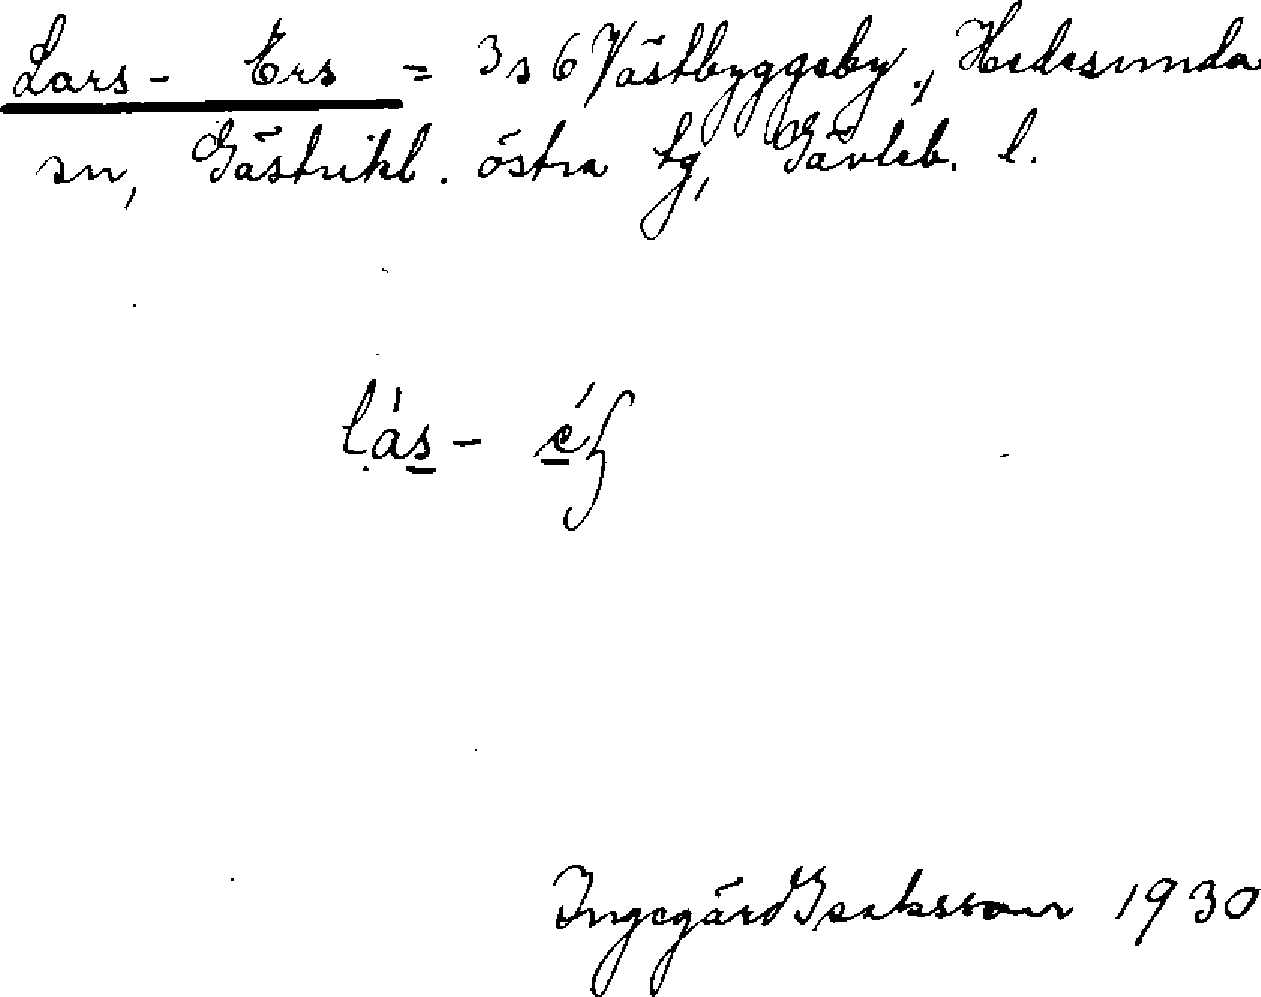 Lars- Ers = 3 s 6 Västbyggeby, Hedesunda
sn, Gästrikl. östra tg, Gävleb. l.
lás- éʃ
Ingegärd Isaksson 1930